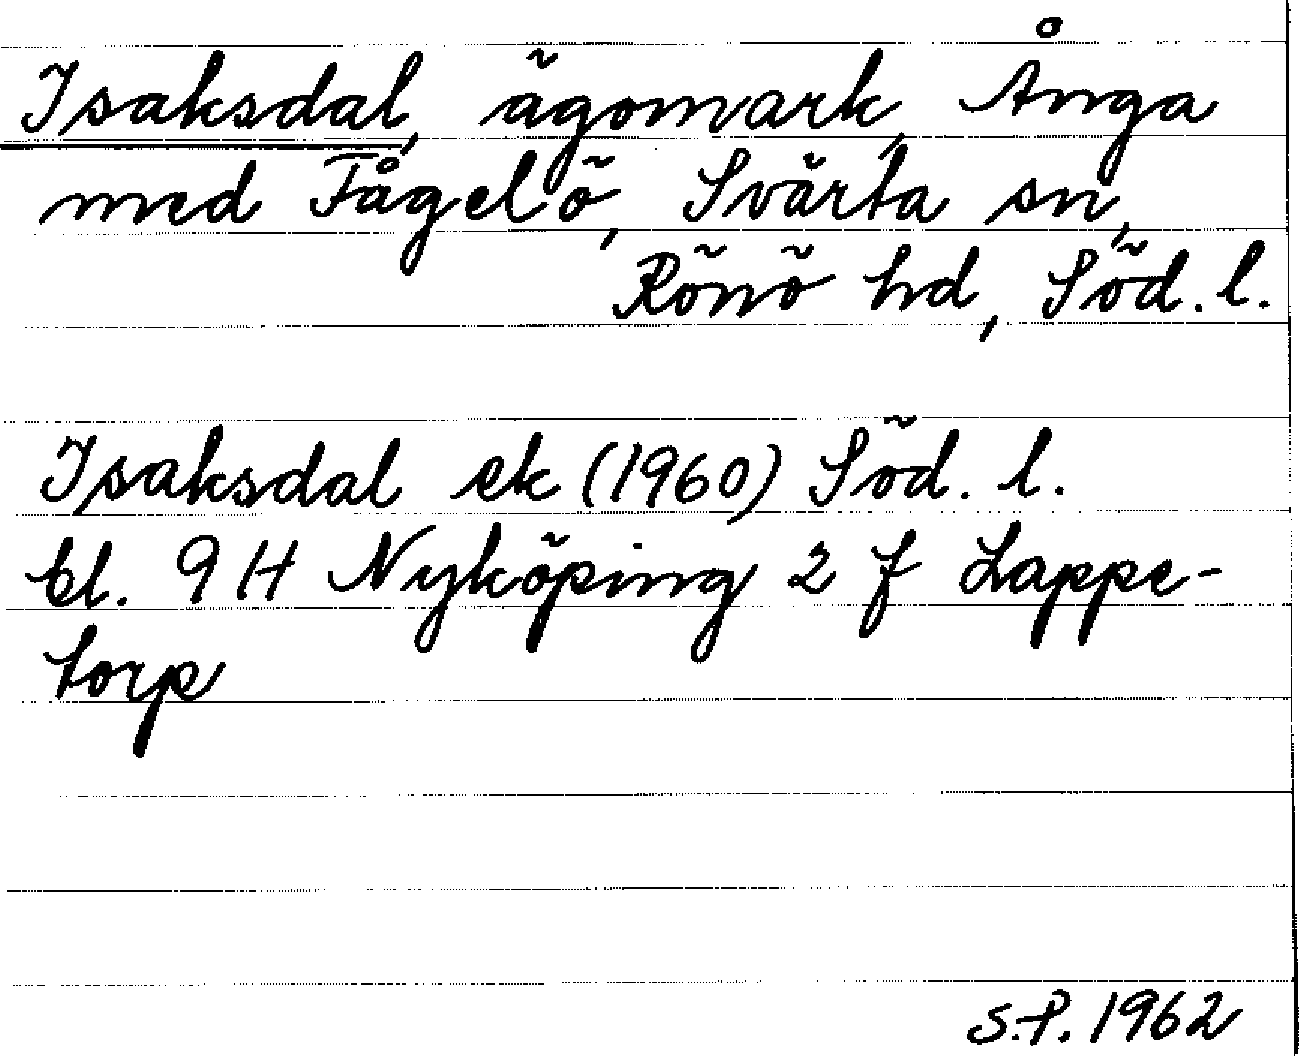 Isaksdal, ägomark, Ånga
med Fågelö, Svärta sn,
Rönö hd, Söd. l.
Isaksdal ek (1960) Söd. l.
bl. 9 H Nyköping 2 f Lappe-
torp
S.P. 1962